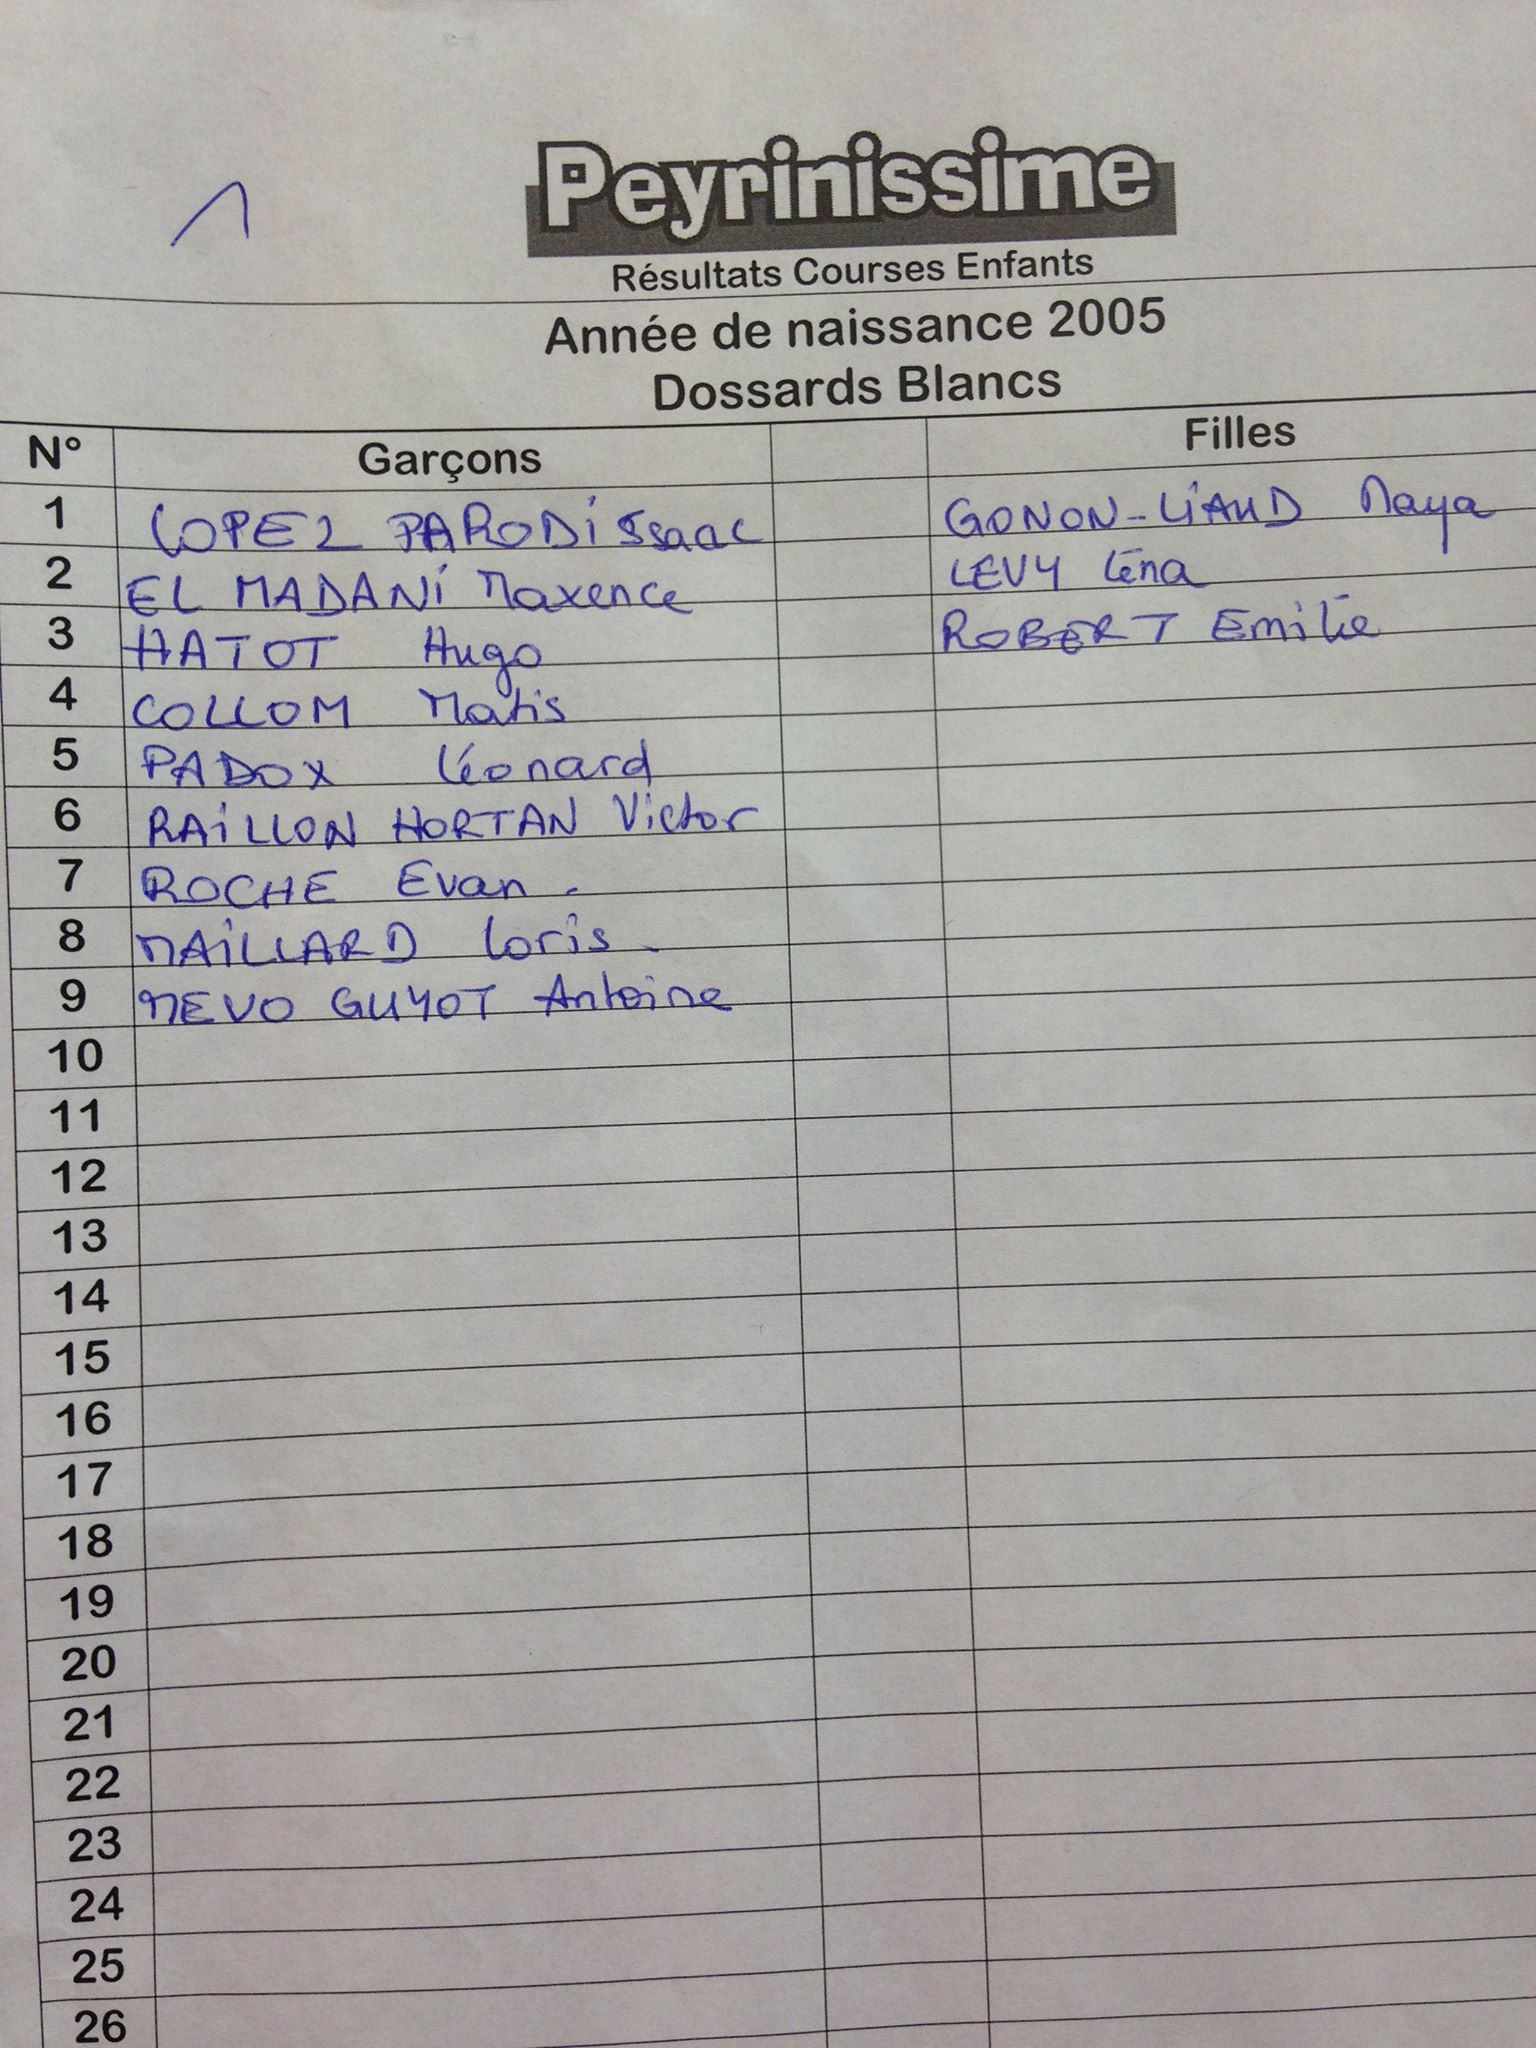 1
Peyrinissime
Résultats Courses Enfants
Année de naissance 2005
Dossards Blancs
N° Garçons Filles
1 LOPEZ PARODI Isaac GONON-LIAUD Maya
2 EL MADANI Maxence LEVY Léna
3 HATOT Hugo ROBERT Emilie
4 COLLOM Matis
5 PADOX Léonard
6 RAILLON HORTAN Victor
7 ROCHE Evan.
8 MAILLARD Loris.
9 MEVO GUYOT Antoine
10
11
12
13
14
15
16
17
18
19
20
21
22
23
24
25
26